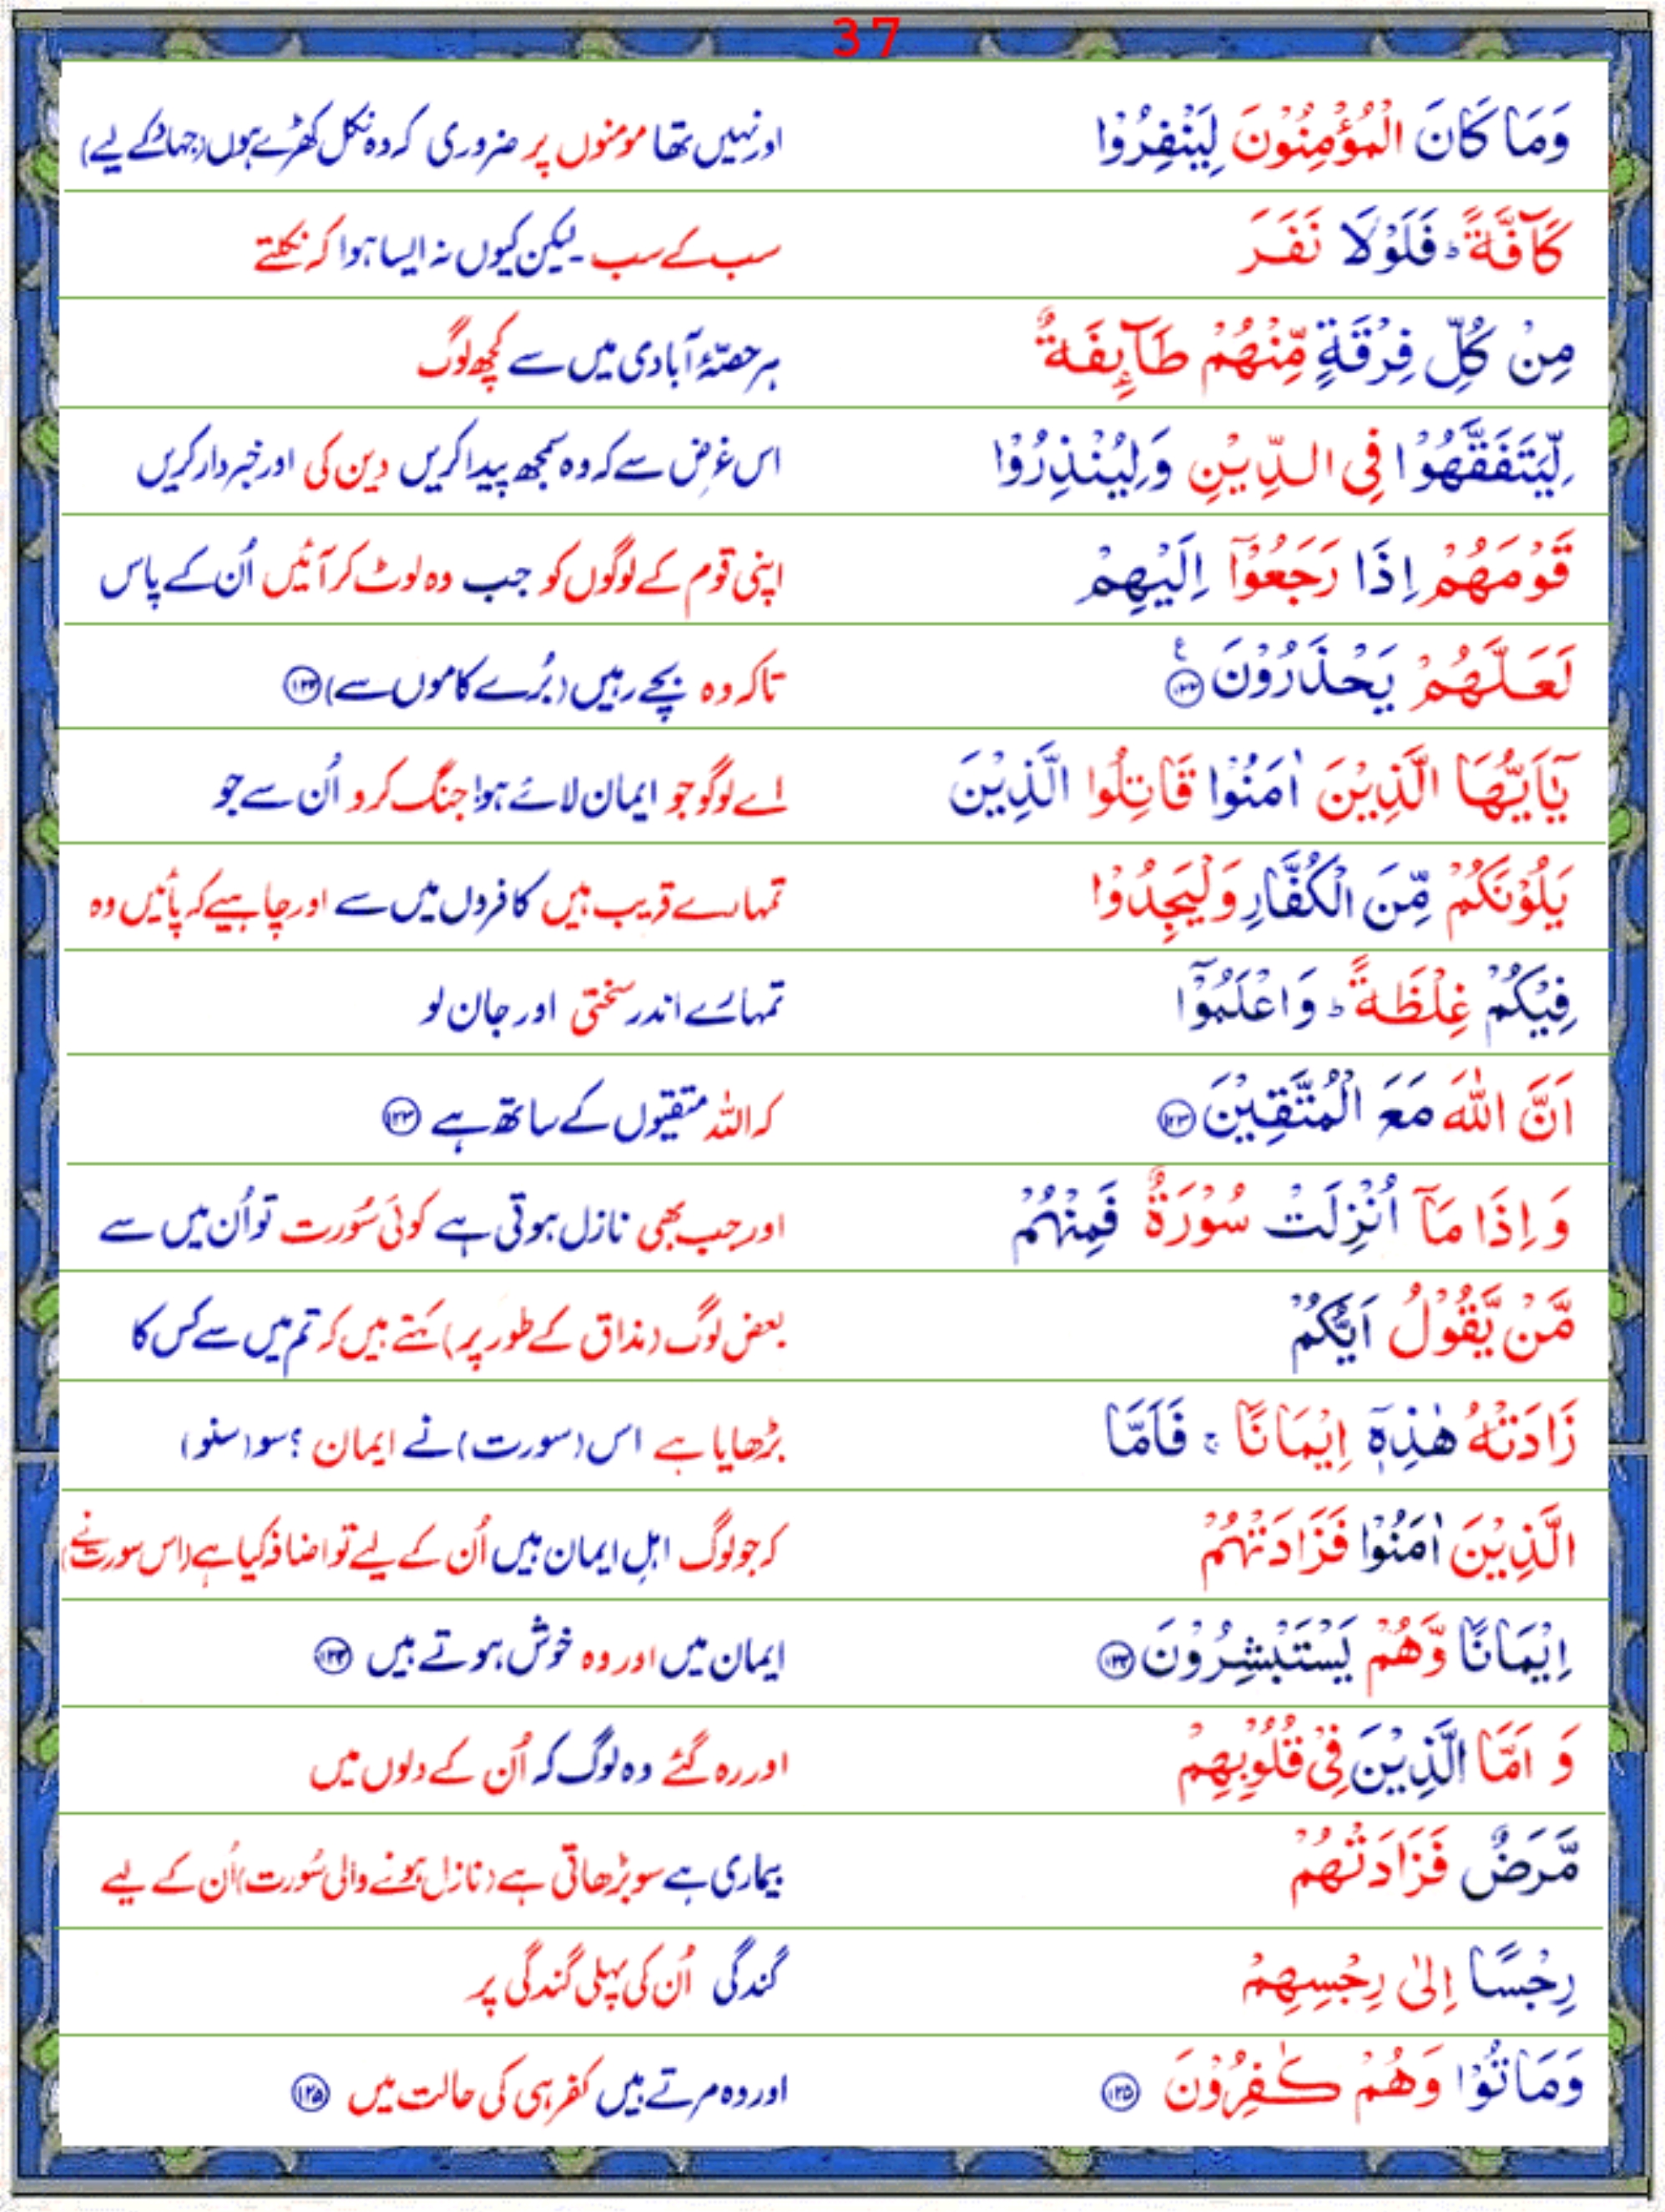 37
وَمَا كَانَ الْمُؤْمِنُوْنَ لِيَنْفِرُوْا اور نہیں تھا مومنوں پر ضروری کہ وہ نکل کھڑے ہوں (جہاد کے لیے)
كَآفَّةً ؕ فَلَوْلَا نَفَرَ سب کے سب ۔ لیکن کیوں نہ ایسا ہوا کہ نکلتے
مِنْ كُلِّ فِرْقَةٍ مِّنْهُمْ طَآىِٕفَةٌ ہر حصّۂ آبادی میں سے کچھ لوگ
لِّيَتَفَقَّهُوْا فِى الدِّيْنِ وَلِيُنْذِرُوْا اس غرض سے کہ وہ سمجھ پیدا کریں دین کی اور خبردار کریں
قَوْمَهُمْ اِذَا رَجَعُوْۤا اِلَيْهِمْ اپنی قوم کے لوگوں کو جب وہ لوٹ کر آئیں اُن کے پاس
لَعَلَّهُمْ يَحْذَرُوْنَ ۧ۝۱۲۲ تاکہ وہ بچے رہیں (بُرے کاموں سے) ۝۱۲۲
يٰۤاَيُّهَا الَّذِيْنَ اٰمَنُوْا قَاتِلُوا الَّذِيْنَ اے لوگو جو ایمان لائے ہو! جنگ کرو اُن سے جو
يَلُوْنَكُمْ مِّنَ الْكُفَّارِ وَلْيَجِدُوْا تمہارے قریب ہیں کافروں میں سے اور چاہیے کہ پائیں وہ
فِيْكُمْ غِلْظَةً ؕ وَاعْلَمُوْۤا تمہارے اندر سختی اور جان لو
اَنَّ اللّٰهَ مَعَ الْمُتَّقِيْنَ ۝۱۲۳ کہ اللہ متقیوں کے ساتھ ہے ۝۱۲۳
وَاِذَا مَاۤ اُنْزِلَتْ سُوْرَةٌ فَمِنْهُمْ اور جب بھی نازل ہوتی ہے کوئی سُورت تو اُن میں سے
مَّنْ يَّقُوْلُ اَيُّكُمْ بعض لوگ (مذاق کے طور پر) کہتے ہیں کہ تم میں سے کس کا
زَادَتْهُ هٰذِهٖۤ اِيْمَانًا ۚ فَاَمَّا بڑھایا ہے اس (سورت) نے ایمان ؟ سو (سنو)
الَّذِيْنَ اٰمَنُوْا فَزَادَتْهُمْ کہ جو لوگ اہلِ ایمان ہیں اُن کے لیے تو اضافہ کیا ہے (اس سورت نے)
اِيْمَانًا وَّهُمْ يَسْتَبْشِرُوْنَ ۝۱۲۴ ایمان میں اور وہ خوش ہوتے ہیں ۝۱۲۴
وَ اَمَّا الَّذِيْنَ فِيْ قُلُوْبِهِمْ اور رہ گئے وہ لوگ کہ اُن کے دلوں میں
مَّرَضٌ فَزَادَتْهُمْ بیماری ہے سو بڑھاتی ہے (نازل ہونے والی سُورت) اُن کے لیے
رِجْسًا اِلٰى رِجْسِهِمْ گندگی اُن کی پہلی گندگی پر
وَمَاتُوْا وَهُمْ كٰفِرُوْنَ ۝۱۲۵ اور وہ مرتے ہیں کفر ہی کی حالت میں ۝۱۲۵